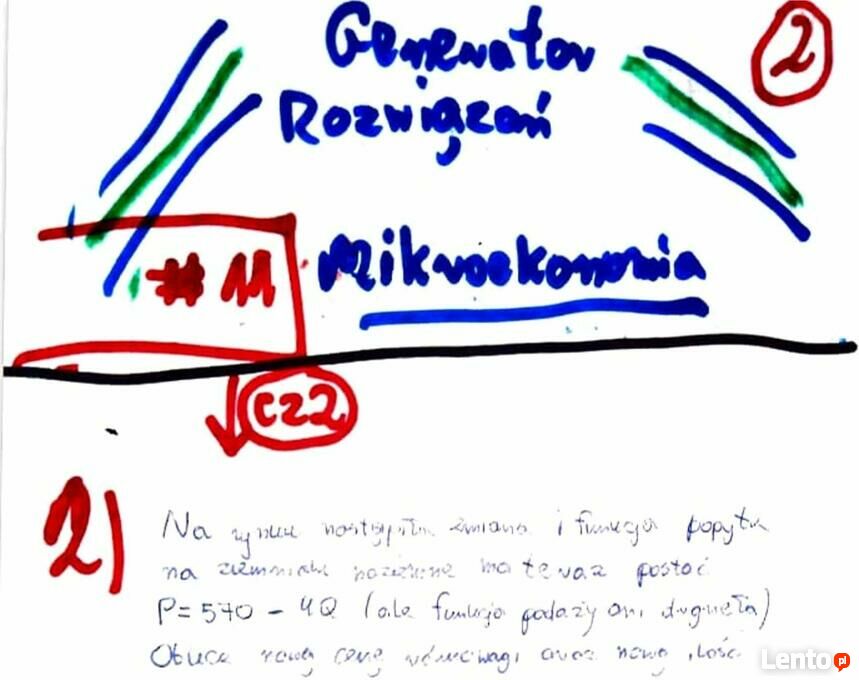 Generator
2
Rozwiązań
# 11
Mikroekonomia
cz2
2)
Na rynku nastąpiła zmiana i funkcja popytu
na ziemniaki ma teraz postać
P = 570 - 4Q (ale funkcja podaży ani drgnęła)
Oblicz nową cenę równowagi oraz nową ilość
Lento.pl